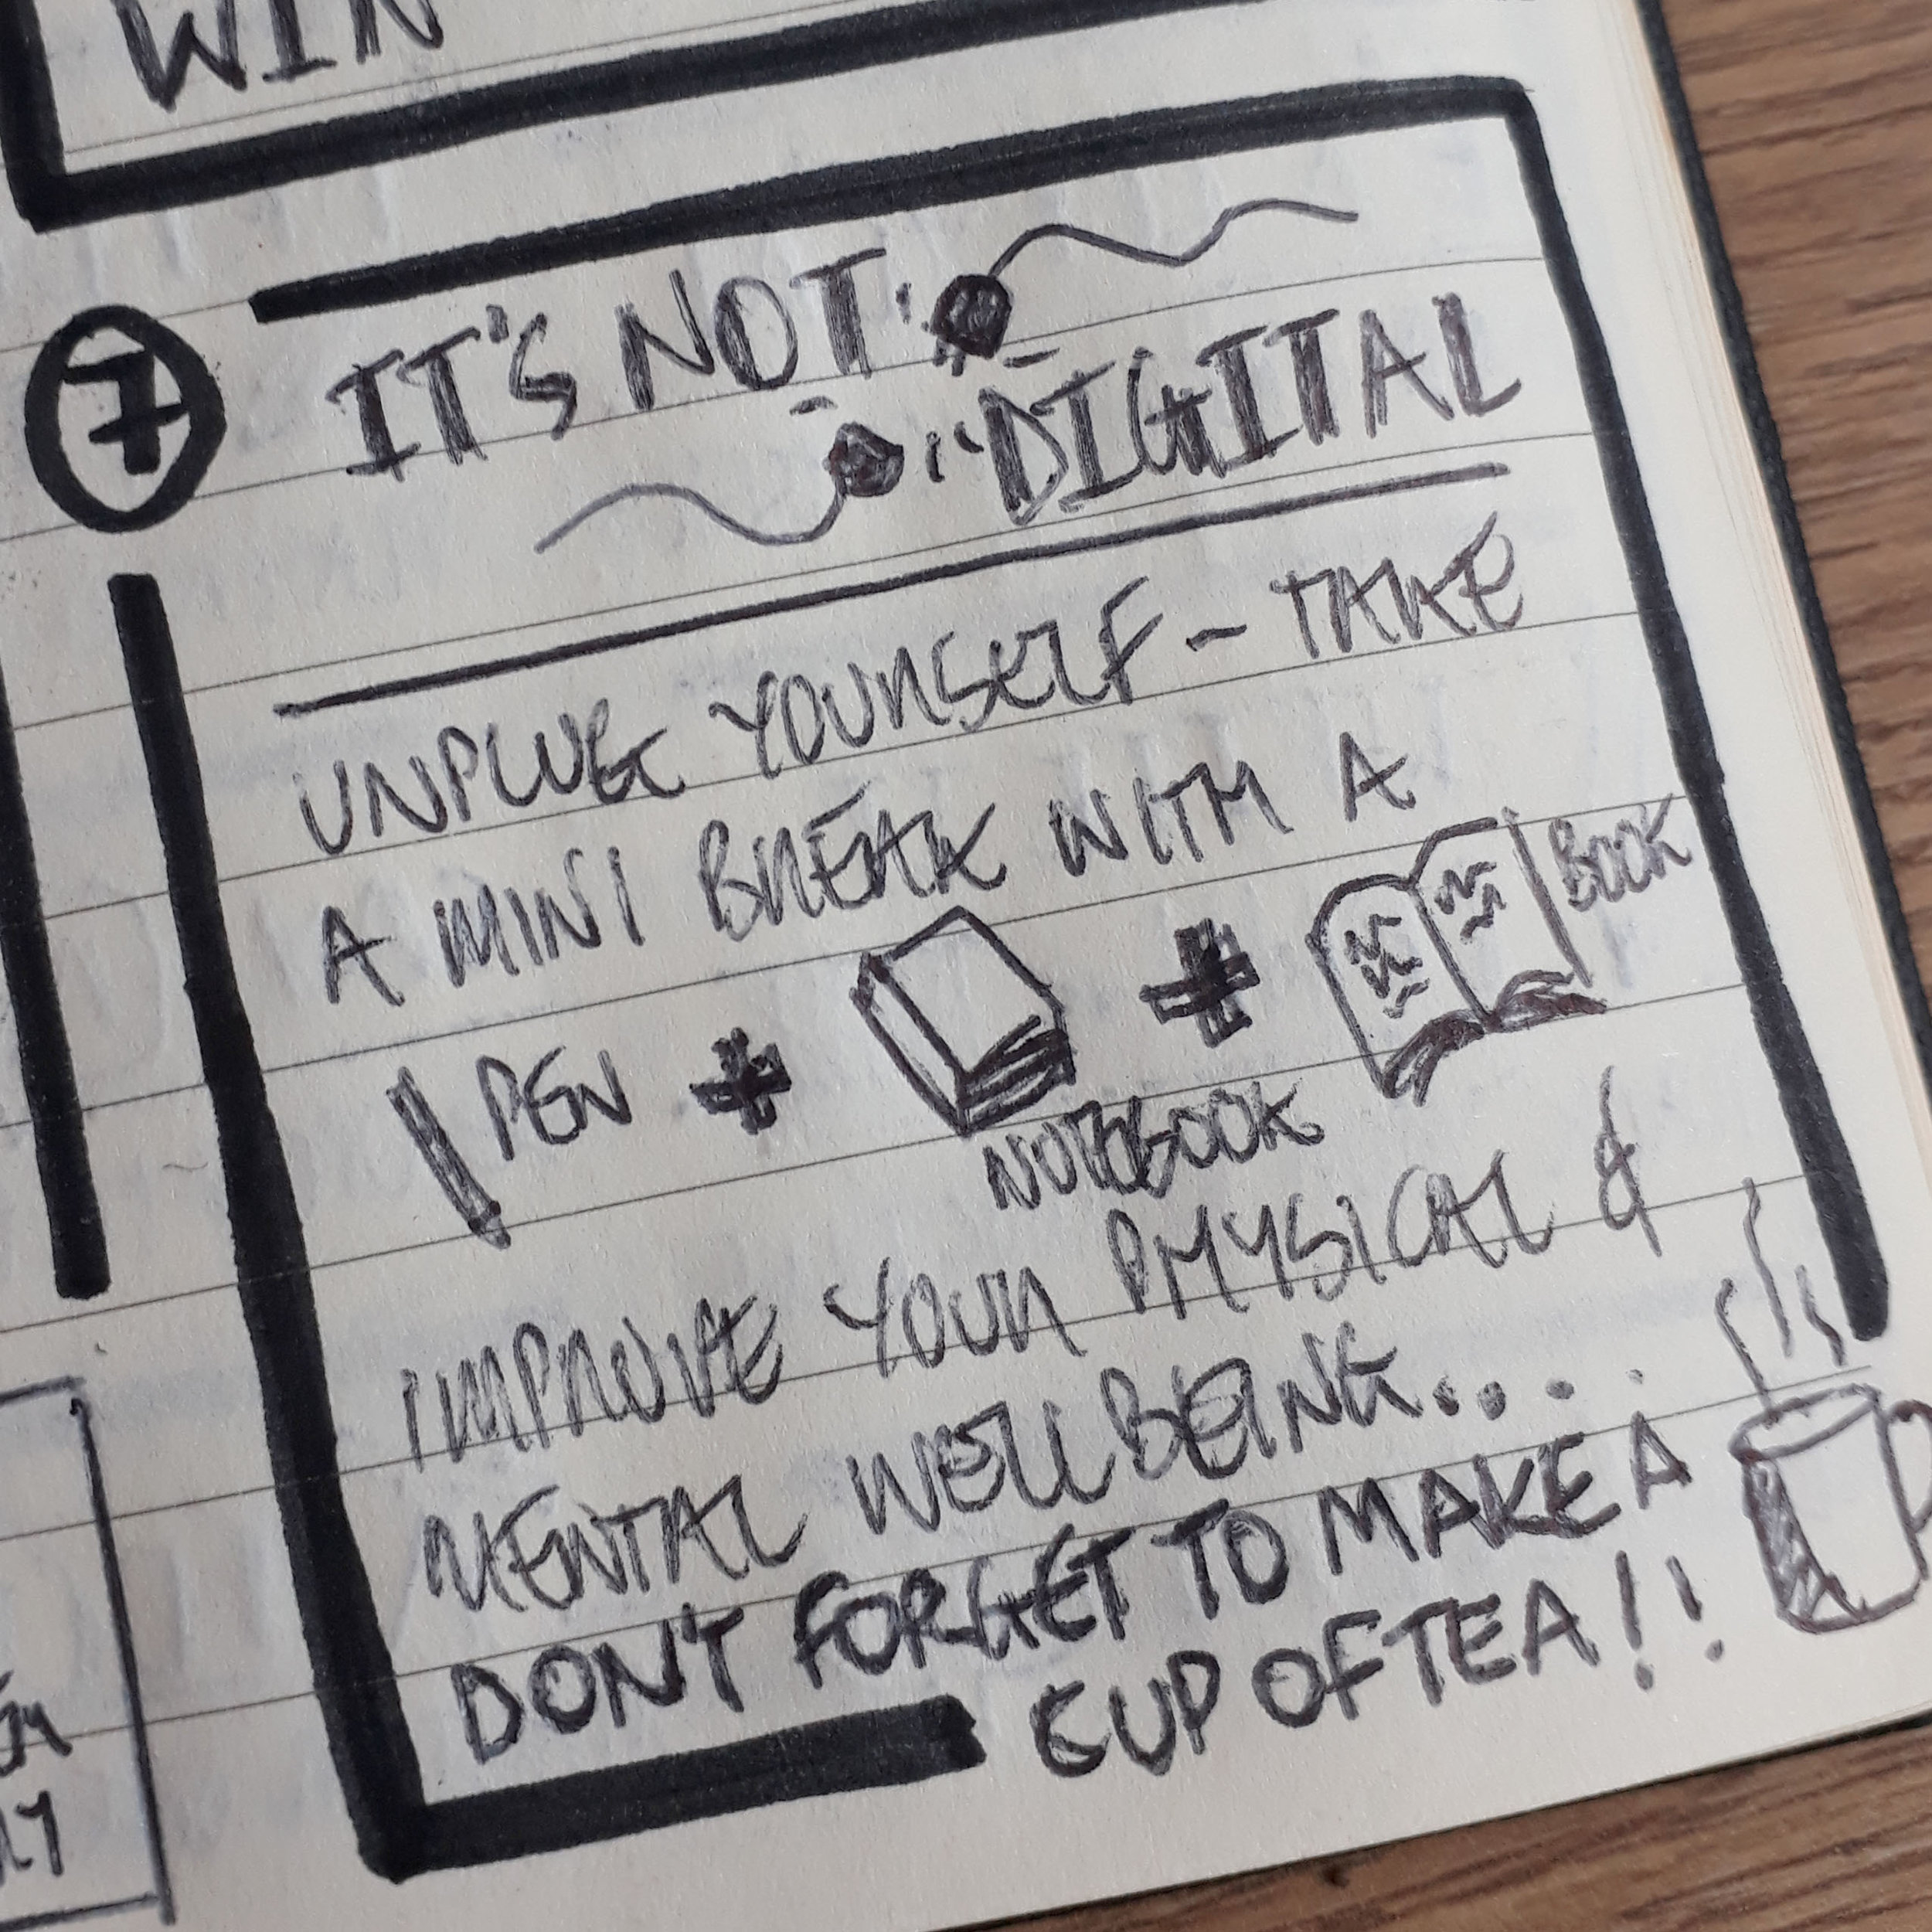 WIN
7
IT'S NOT
DIGITAL
UNPLUG YOURSELF - TAKE
A MINI BREAK WITH A
PEN + NOTEBOOK + BOOK
IMPROVE YOUR PHYSICAL &
MENTAL WELLBEING....
DON'T FORGET TO MAKE A
CUP OF TEA!!